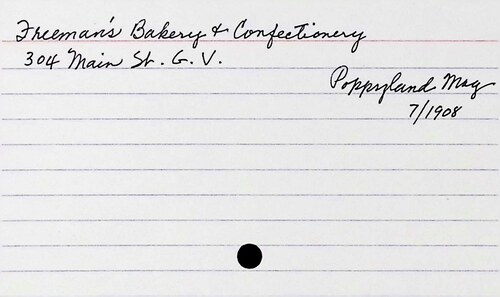 Freeman's Bakery & Confectionery
304 Main St. G. V.
Poppyland Mag
7/1908